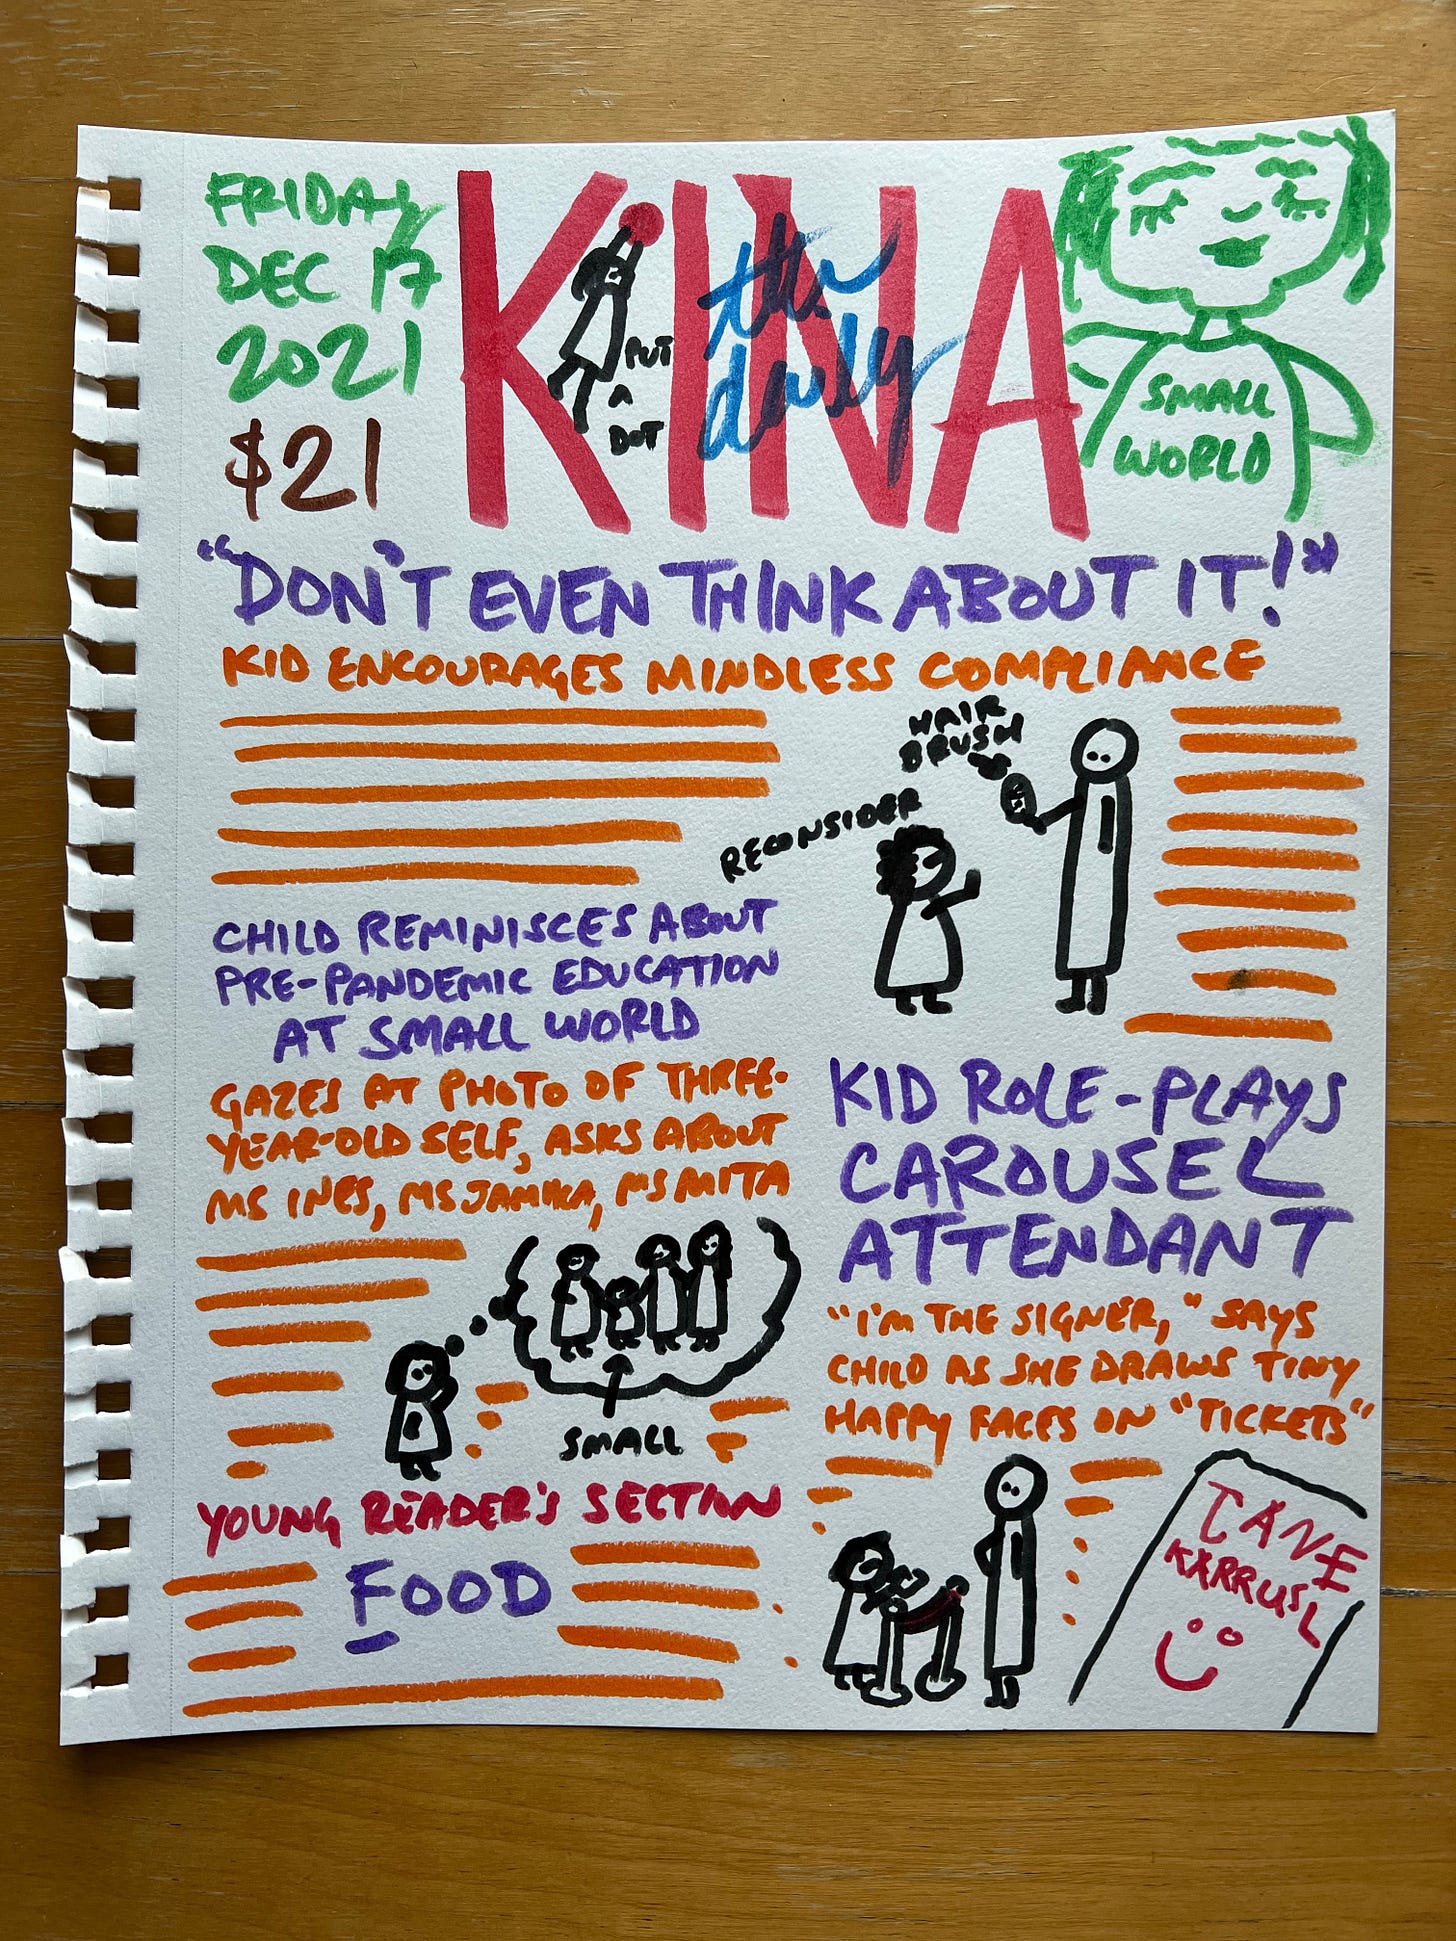 FRIDAY
DEC 17
2021
$21
KINA
the
daily
PUT
A
DOT
SMALL
WORLD
"DON'T EVEN THINK ABOUT IT!"
KID ENCOURAGES MINDLESS COMPLIANCE
HAIR
BRUSH
RECONSIDER
CHILD REMINISCES ABOUT
PRE-PANDEMIC EDUCATION
AT SMALL WORLD
GAZES AT PHOTO OF THREE-
YEAR-OLD SELF, ASKS ABOUT
MS INES, MS JAMIKA, MS MITA
SMALL
KID ROLE-PLAYS
CAROUSEL
ATTENDANT
"I'M THE SIGNER," SAYS
CHILD AS SHE DRAWS TINY
HAPPY FACES ON "TICKETS"
JANE
KARRUSL
YOUNG READER'S SECTION
FOOD